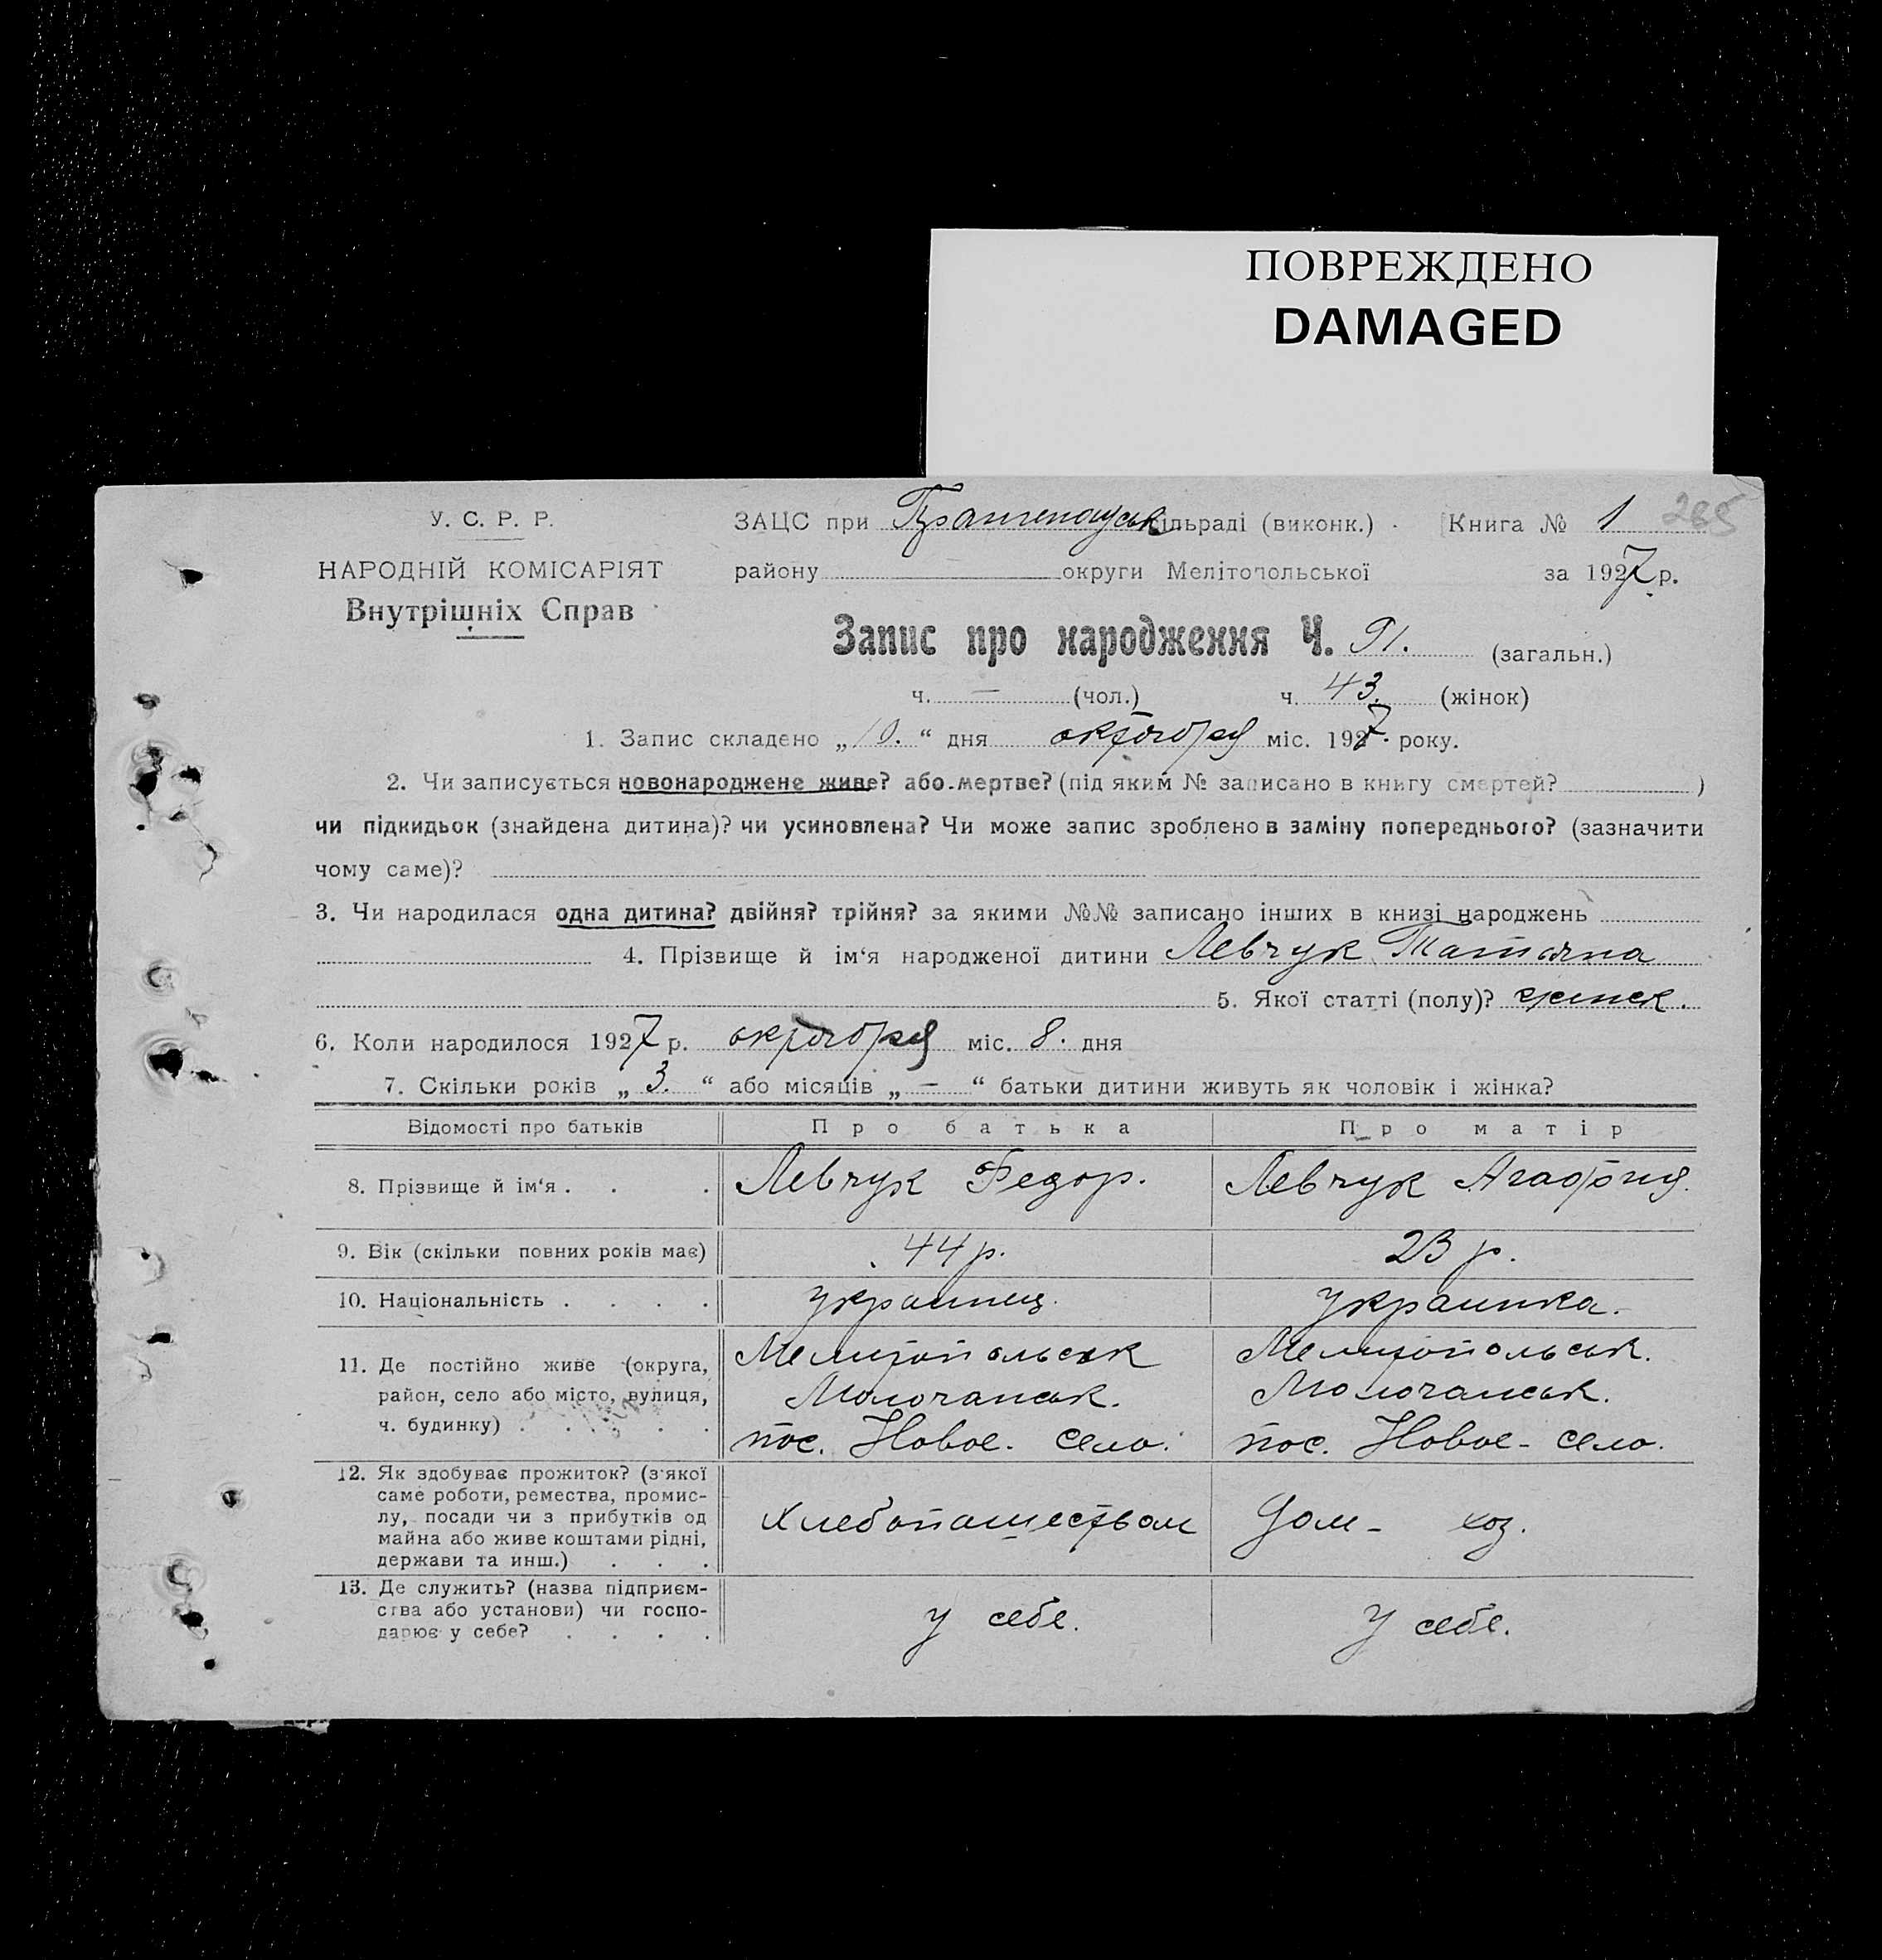 ПОВРЕЖДЕНО
DAMAGED
У. С. Р. Р.
НАРОДНІЙ КОМІСАРІЯТ
Внутрішніх Справ
ЗАЦС при сільраді (виконк.) Книга № 1 265
району — округи Мелітопольської за 1927 р.
Запис про народження Ч. 91. (загальн.)
ч. — (чол.) ч. 43. (жінок)
1. Запис складено „10.“ дня октября міс. 1927. року.
2. Чи записується новонароджене живе? або мертве? (під яким № записано в книгу смертей? )
чи підкидьок (знайдена дитина)? чи усиновлена? Чи може запис зроблено в заміну попереднього? (зазначити
чому саме)?
3. Чи народилася одна дитина? двійня? трійня? за якими №№ записано інших в книзі народжень
4. Прізвище й ім‘я народженої дитини Левчук Татьяна
5. Якої статті (полу)? женск.
6. Коли народилося 1927 р. октября міс. 8. дня
7. Скільки років „ 3. “ або місяців „ — “ батьки дитини живуть як чоловік і жінка?
Відомості про батьків Про батька Про матір
8. Прізвище й ім‘я . . . Левчук Федор. Левчук Агафия.
9. Вік (скільки повних років має) 44 р. 23 р.
10. Національність . . . . украинец. украинка.
11. Де постійно живе (округа,
район, село або місто, вулиця,
ч. будинку) . . . . .
Мелитопольск
Молочанськ.
пос. Новое. село.
Мелитопольськ.
Молочанськ.
пос. Новое-село.
12. Як здобуває прожиток? (з'якої
саме роботи, ремества, промис-
лу, посади чи з прибутків од
майна або живе коштами рідні,
держави та инш.) . . .
Хлебопашеством
Дом- хоз.
13. Де служить? (назва підприєм-
ства або установи) чи госпо-
дарює у себе? . . . .
У себе.
У себе.